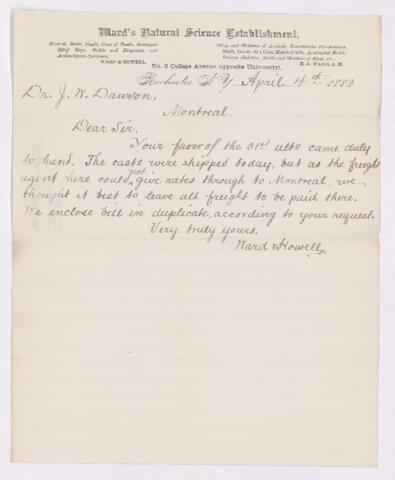 Ward's Natural Science Establishment,
Minerals, Rocks, Fossils, Casts of Fossils, Geological
Relief Maps, Models and Diagrams, and
Archæological Specimens.
WARD & HOWELL.
Skins and Skeletons of Animals,
H. A. WARD, A. M.
No. 2 College Avenue (opposite University),
Rochester N.Y. April 4th 1882
Dr. J. W. Dawson,
Montreal.
Dear Sir.
Your favor of the 31st ulto came duly
to hand. The casts were shipped today, but as the freight
agent here could not give rates through to Montreal, we
thought it best to leave all freight to be paid there.
We enclose bill in duplicate, according to your request.
Very truly yours,
Ward & Howell